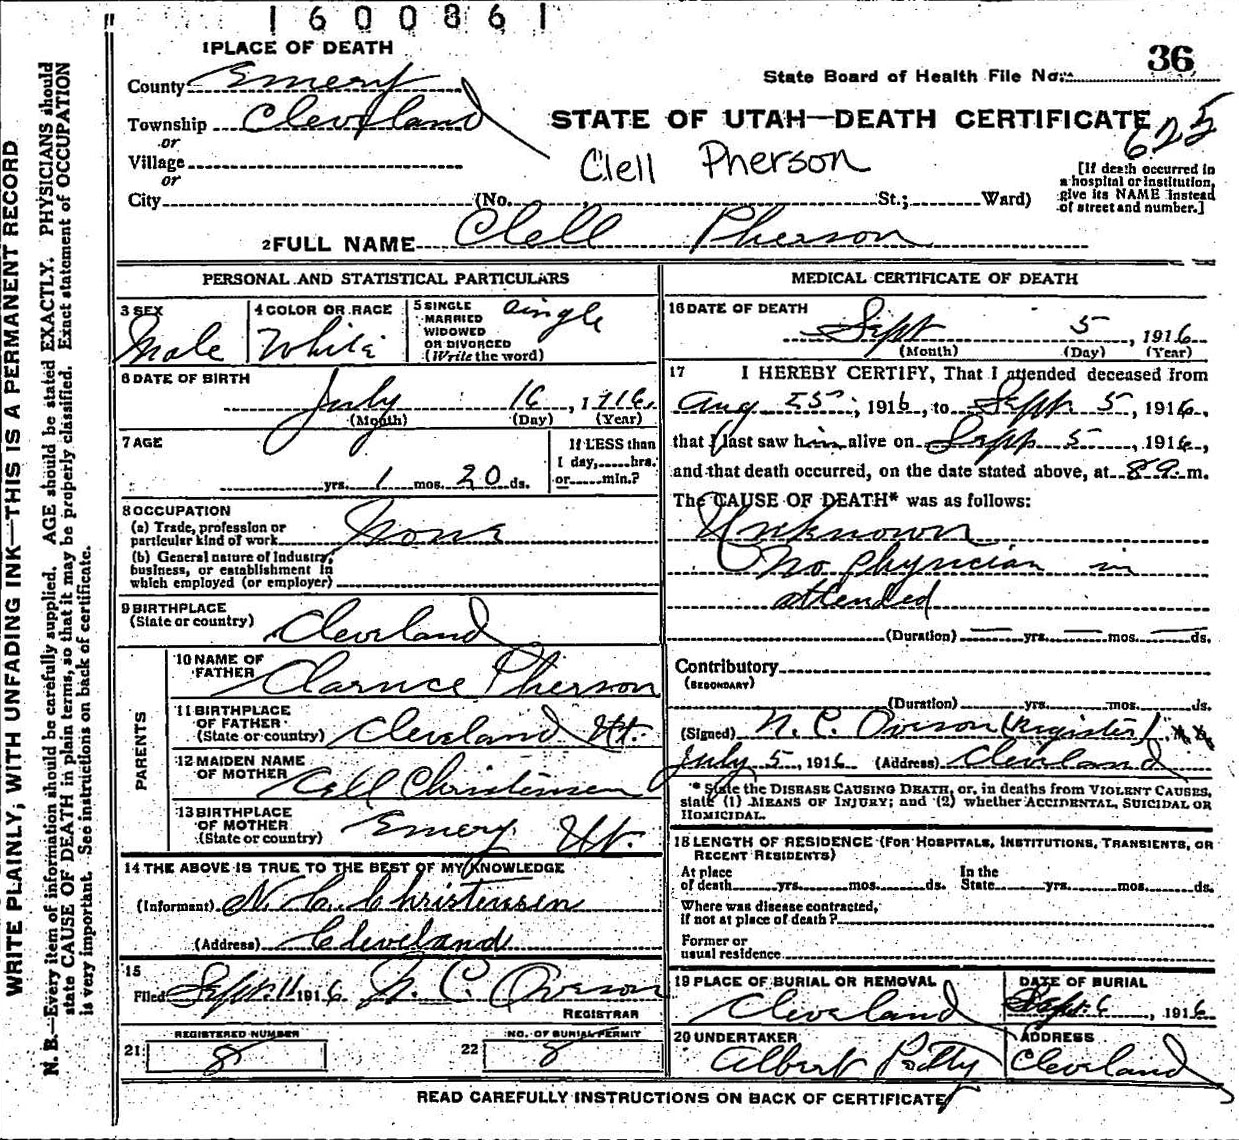 1600861
1 PLACE OF DEATH
36
State Board of Health File No.
County Emery
Township Cleveland
or
Village
or
City
STATE OF UTAH—DEATH CERTIFICATE
625
Clell Pherson
[If death occurred in a hospital or institution, give its NAME instead of street and number.]
(No. St.; Ward)
2 FULL NAME Clell Pherson
PERSONAL AND STATISTICAL PARTICULARS
3 SEX Male
4 COLOR OR RACE White
5 SINGLE MARRIED WIDOWED OR DIVORCED (Write the word) Single
6 DATE OF BIRTH
July 16, 1916,
(Month) (Day) (Year)
7 AGE
yrs. 1 mos. 20 ds.
If LESS than
1 day, hrs.
or min.?
8 OCCUPATION
(a) Trade, profession or particular kind of work None
(b) General nature of Industry, business, or establishment in which employed (or employer)
9 BIRTHPLACE
(State or country) Cleveland
PARENTS
10 NAME OF FATHER Clarnce Pherson
11 BIRTHPLACE OF FATHER (State or country) Cleveland Ut.
12 MAIDEN NAME OF MOTHER Cell Christensen
13 BIRTHPLACE OF MOTHER (State or country) Emery Ut.
14 THE ABOVE IS TRUE TO THE BEST OF MY KNOWLEDGE
(Informant) N. C. Christensen
(Address) Cleveland
15
Filed Sept. 11 1916 N. C. Overson
REGISTRAR
REGISTERED NUMBER
21 8
NO. OF BURIAL PERMIT
22 8
MEDICAL CERTIFICATE OF DEATH
16 DATE OF DEATH
Sept 5, 1916
(Month) (Day) (Year)
17 I HEREBY CERTIFY, That I attended deceased from
Aug 25, 1916, to Sept. 5, 1916,
that I last saw him alive on Sept 5, 1916,
and that death occurred, on the date stated above, at 8 a. m.
The CAUSE OF DEATH* was as follows:
Unknown
No physician in
attended
(Duration) yrs. mos. ds.
Contributory
(SECONDARY)
(Duration) yrs. mos. ds.
(Signed) N. C. Overson (Register)
July 5, 1916 (Address) Cleveland
* State the DISEASE CAUSING DEATH, or, in deaths from VIOLENT CAUSES,
state (1) MEANS OF INJURY; and (2) whether ACCIDENTAL, SUICIDAL OR
HOMICIDAL.
18 LENGTH OF RESIDENCE (FOR HOSPITALS, INSTITUTIONS, TRANSIENTS, OR
RECENT RESIDENTS)
At place of death yrs. mos. ds. In the State yrs. mos. ds.
Where was disease contracted,
if not at place of death?
Former or
usual residence
19 PLACE OF BURIAL OR REMOVAL
Cleveland
DATE OF BURIAL
Sept. 6, 1916
20 UNDERTAKER
Albert Potty
ADDRESS
Cleveland
READ CAREFULLY INSTRUCTIONS ON BACK OF CERTIFICATE
WRITE PLAINLY, WITH UNFADING INK—THIS IS A PERMANENT RECORD
N. B.—Every item of information should be carefully supplied. AGE should be stated EXACTLY. PHYSICIANS should
state CAUSE OF DEATH in plain terms, so that it may be properly classified. Exact statement of OCCUPATION
is very important. See instructions on back of certificate.